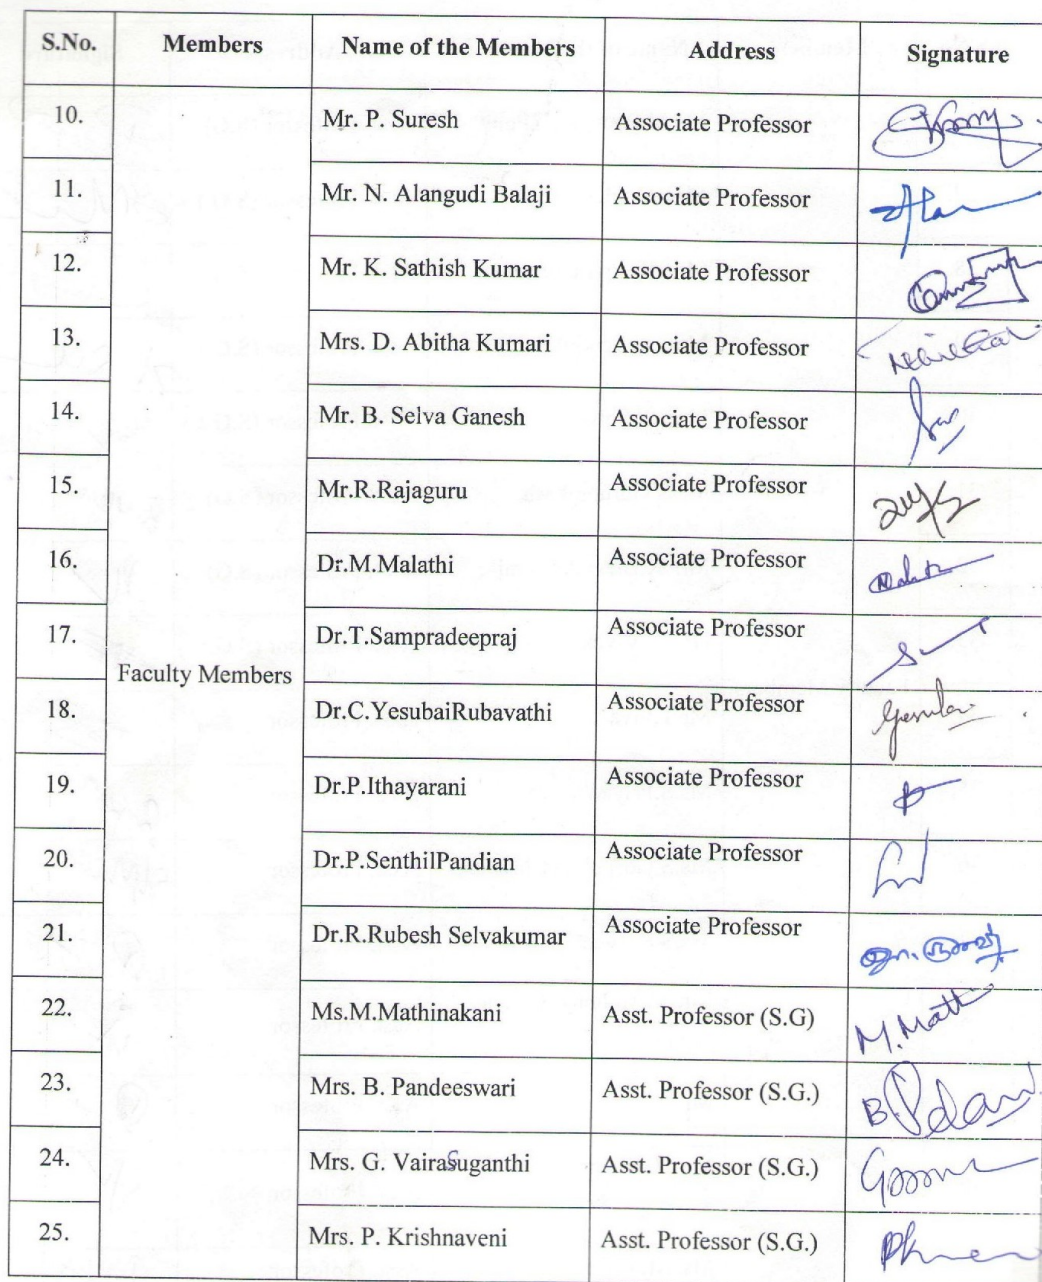 S.No. Members Name of the Members Address Signature
10. Mr. P. Suresh Associate Professor
11. Mr. N. Alangudi Balaji Associate Professor
12. Mr. K. Sathish Kumar Associate Professor
13. Mrs. D. Abitha Kumari Associate Professor
14. Mr. B. Selva Ganesh Associate Professor
15. Mr.R.Rajaguru Associate Professor
16. Dr.M.Malathi Associate Professor
17. Dr.T.Sampradeepraj Associate Professor
Faculty Members
18. Dr.C.YesubaiRubavathi Associate Professor
19. Dr.P.Ithayarani Associate Professor
20. Dr.P.SenthilPandian Associate Professor
21. Dr.R.Rubesh Selvakumar Associate Professor
22. Ms.M.Mathinakani Asst. Professor (S.G) M. Math
23. Mrs. B. Pandeeswari Asst. Professor (S.G.)
24. Mrs. G. Vairasuganthi Asst. Professor (S.G.)
25. Mrs. P. Krishnaveni Asst. Professor (S.G.)